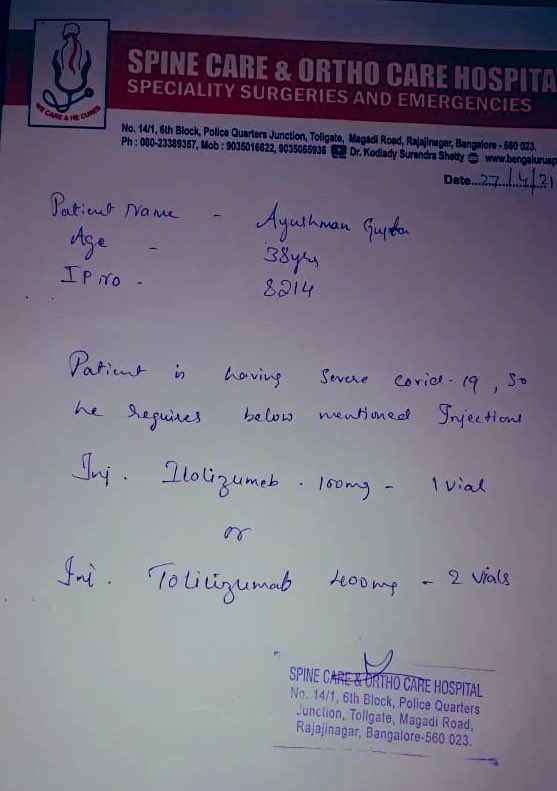 WE CARE & HE CURES
SPINE CARE & ORTHO CARE HOSPITA
SPECIALITY SURGERIES AND EMERGENCIES
No. 14/1, 6th Block, Police Quarters Junction, Tollgate, Magadi Road, Rajajinagar, Bangalore - 560 023.
Ph : 080-23389357, Mob : 9035016622, 9035055936 Dr. Kodlady Surendra Shetty www.bengalurusp
Date...27/4/21
Patient Name - Ayushman Gupta
Age - 38yrs
IP No - 8214
Patient is having severe covid-19, so
he requires below mentioned Injections
Inj. Itolizumab - 100mg - 1 Vial
or
Inj. Tolicizumab 400mg - 2 Vials
SPINE CARE & ORTHO CARE HOSPITAL
No. 14/1, 6th Block, Police Quarters
Junction, Tollgate, Magadi Road,
Rajajinagar, Bangalore-560 023.